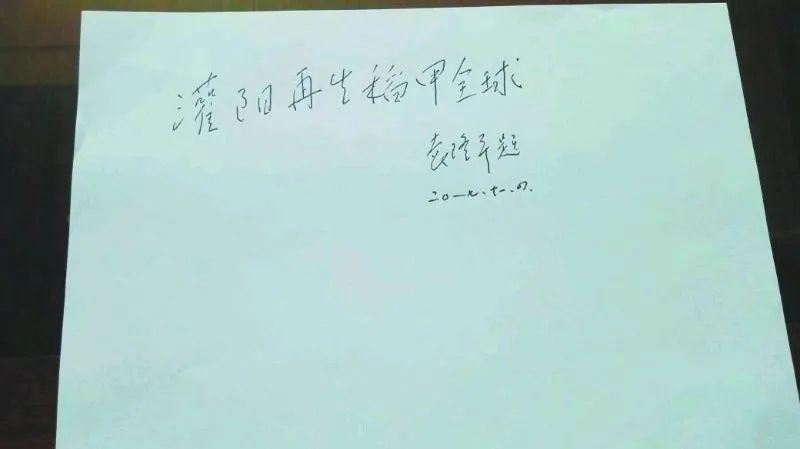 灌阳再生稻甲全球
袁隆平题
二〇一七.十一.四.